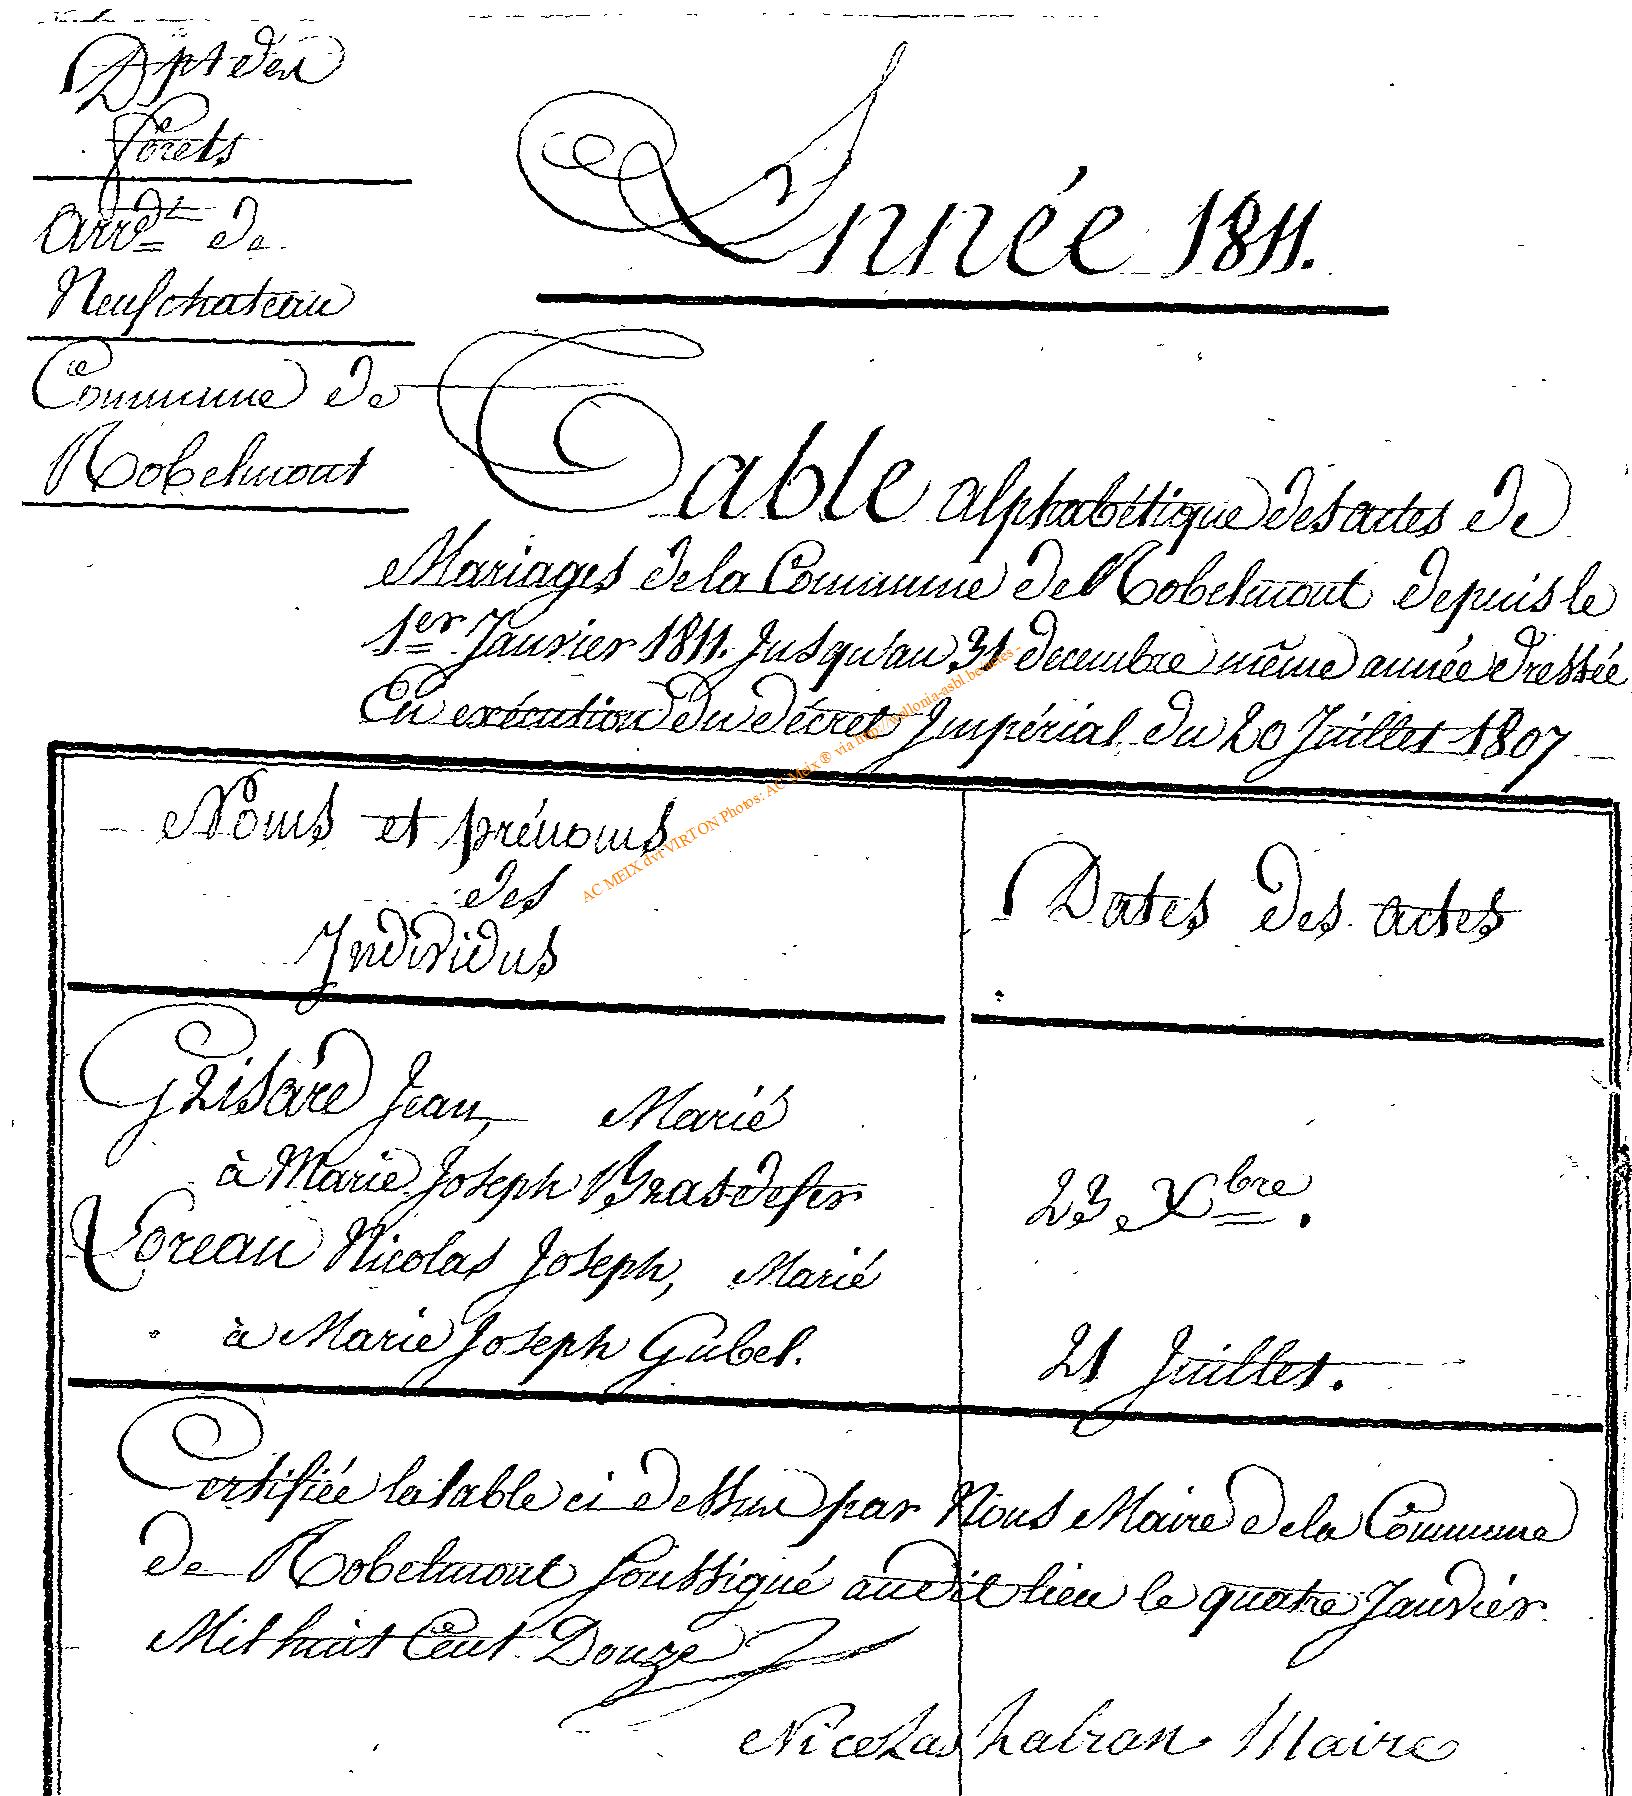 Dpt des
forets
Arrdt de
Neufchateau
Commune de
Robelmont
Année 1811.
Table alphabétique des actes de
Mariages de la Commune de Robelmont depuis le
1er Janvier 1811. Jusqu'au 31 decembre même année dressée
En exécution du décret Impérial du 20 Juillet 1807
Noms et prénoms
des
Individus
Dates des actes
Grisare Jean, Marié
à Marie Joseph Brasdefer
23 Xbre.
Loreau Nicolas Joseph, Marié
à Marie Joseph Gubel.
21 Juillet.
Certifiée la table ci dessus par Nous Maire de la Commune
de Robelmont soussigné audit lieu le quatre Janvier
Mil huit Cent Douze
Nicolas Maire
AC MEIX dvt VIRTON Photos: AC Meix ® via